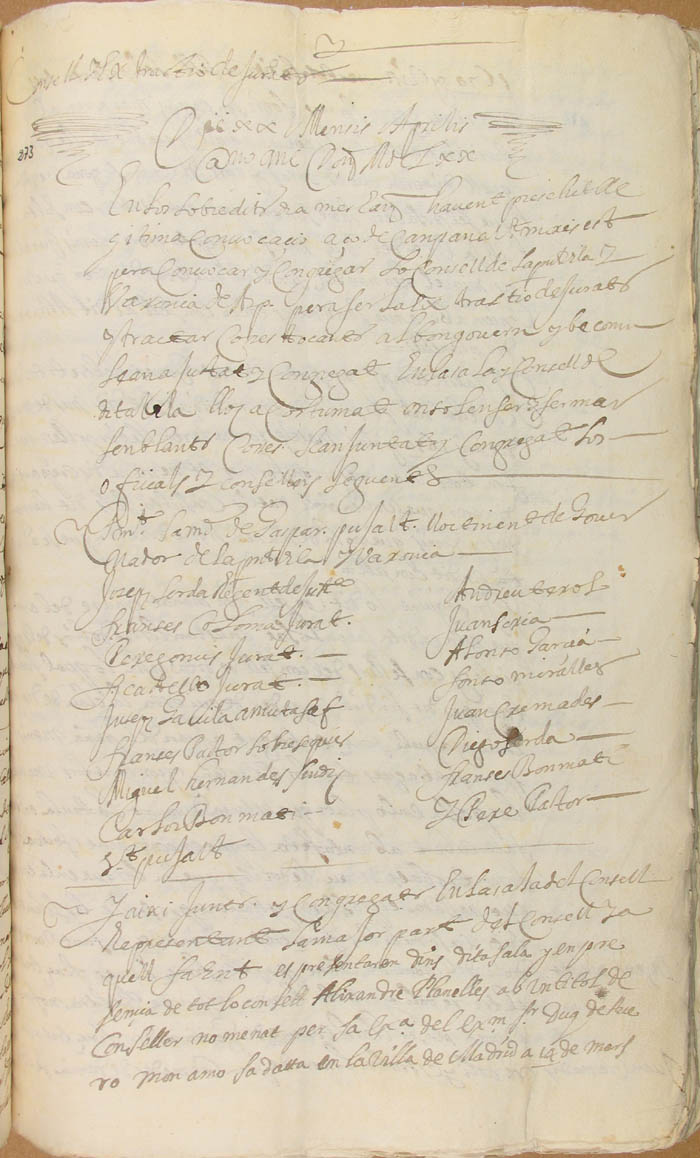 Consell y Extractio de Jurats
273
Die xx Mensis Aprilis
Anno a Nat Dom MDCLxx
En los sobredits dia mes E any havent precehit lle
gitima Convocacio a so de Campana Ut moris est
pera Convocar y Congregar lo Consell de la pnt vila y
Varonia de Asp. pera fer la Extractio de Jurats
y tractar Coses tocants al bon govern y be comu
se an a Justat y Congregat En la sala y Consell de
dita Vila lloch a Costumat on se solen fer y fermar
semblants Coses se an Juntat y Congregat los
oficials y consellers seguents
Primt. lamt. de Gaspar pujalt. lloctinent de Gover
nador de la pnt vila y Varonia
Josep serda Regent de Justa
franses Coloma Jurat.
Pere gomis Jurat.
Castello Jurat.
Jusep Gavila amutasaf
franses Pastor sobresequier
Miquel hernandes sindich
Carlos Bonmati
Vt. pujalt
Andreu terol
Juan soria
Alonso Garcia
fonso miralles
Juan Cremades
Diego serda
franses Bonmati
y Pere Pastor
Y aixi Junts. y Congregats En la sala del Consell
Representant la major part del Consell y a
quell fahent es presentaren dins dita sala y en pre
sencia de tot lo consell Alixandre Planelles ab un titol de
Conseller nomenat per sa Exa. del Exm. sr. Duq de
mon amo sa data en la Villa de Madrid a 14 de mars